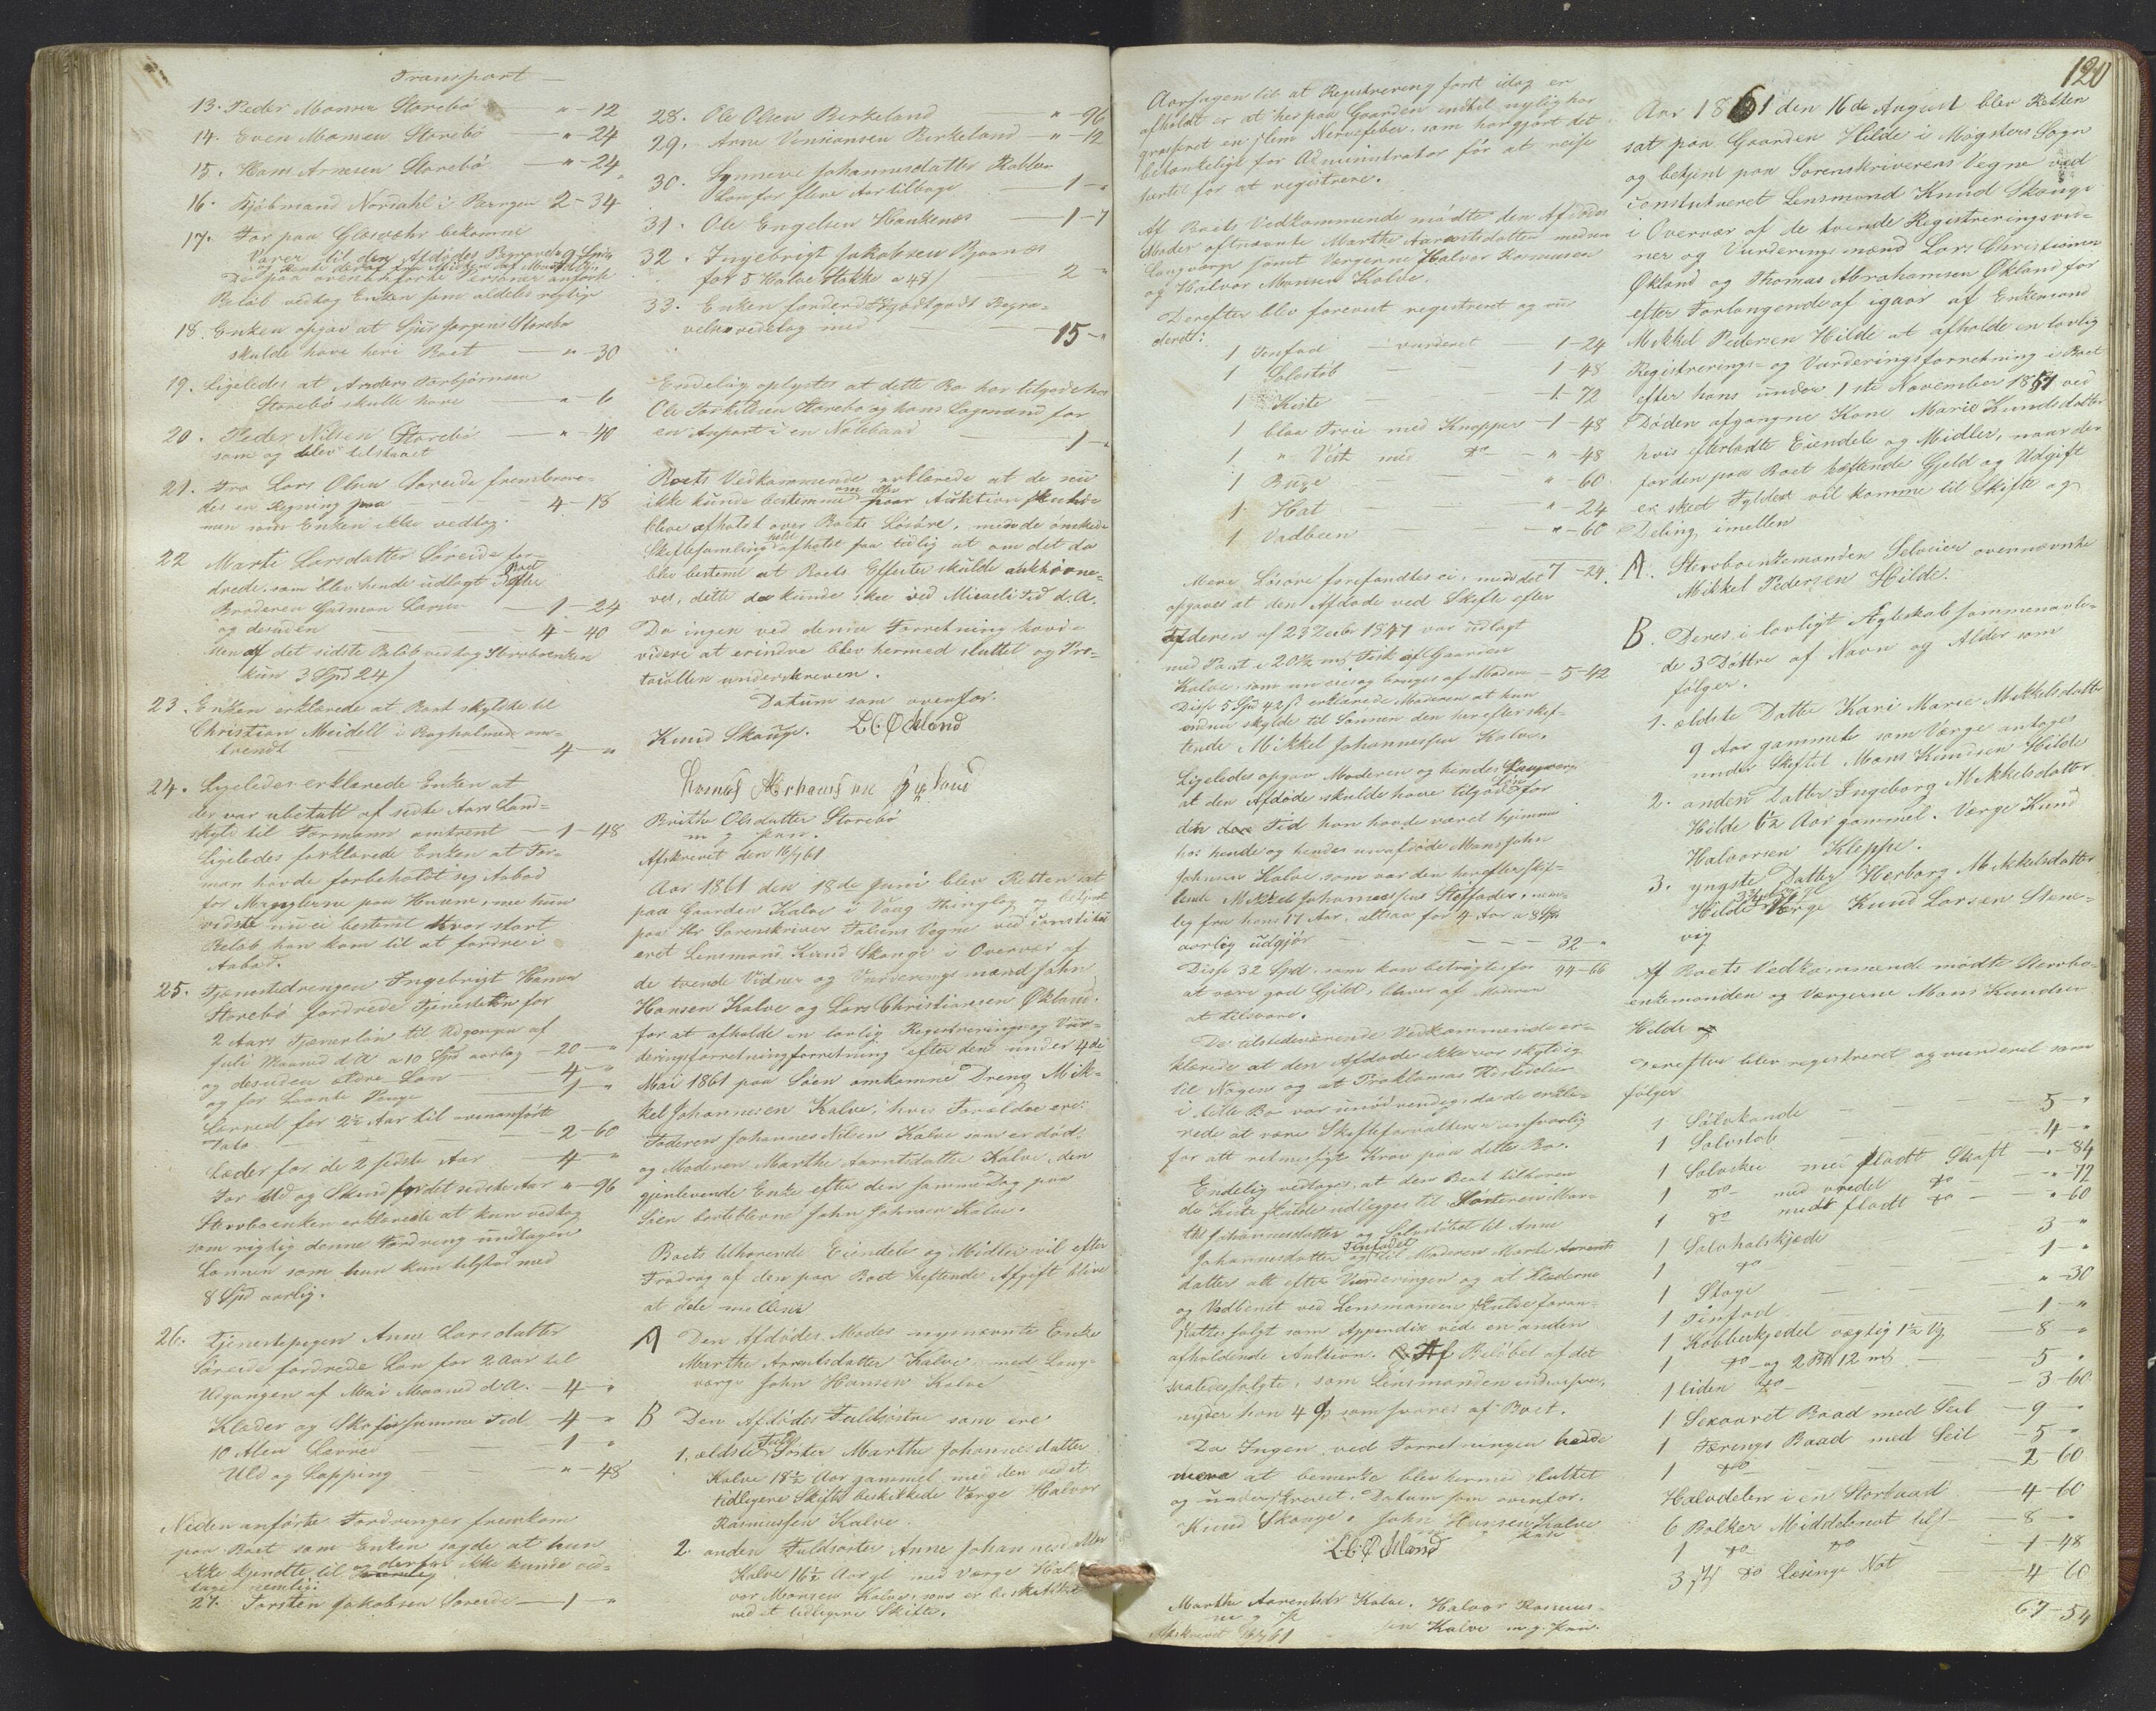 Transport —
13. Peder Monsen Storebö — " - 12
14. Even Monsen Storebö — " - 24
15. Hans Arnesen Storebö — " - 24
16. Kjöbmand Nordahl i Bergen 2 - 34
17. For paa Glesvæhr bekomne
Varer til den Afdödes Begravelse
Beløb vedtog Enken som aldeles rigtige
18. Enken opgav at Sjur Jørgens Storebø
skulde have heri Boet — " - 30
19. Ligeledes at Anders Torbjörnsen
Storebö skulle have — " - 6
20. Peder Nilsen Storebö — " - 40
som og blev tilstaaet
21. Fra Lars Olsen Söreide frembræve-
des en Regning paa — 4 - 18
men som Enken ikke vedtog.
22 Marte Larsdatter Söreide for-
drede, som blev hende udlagt i Boet efter
Broderen Gudmon Larsen — 1 - 24
og desuden — 4 - 40
men af det sidste Belöb vedtog Sterboenken
kun 3 Spd 24 /
23. Enken erklærede at Boet skyldte til
Christian Meidell i Bagholmen om-
trendt — 4 - "
24. Ligeledes erklærede Enken at
der var ubetalt af sidste Aars Land-
skyld til Formann omtrent — 1 - 48
Ligeledes forklarede Enken at For-
man havde forbeholdt sig Aabod
for Manglerne paa Husene, men hun
vidste nu ei bestemt hvor stort
Beløb han kom til at fordre i
Aabod.
25. Tjenestedrengen Ingebrigt Hansen
Storebö fordrede Tjenestelön for
2 Aars Tjenerlön til Udgangen af
Juli Maaned d.A. a 10 Spd aarlig — 20 - "
og desuden ældre Lön — 4 - "
og for Laante Penge — 1 - "
Lerred for 2½ Aar til ovenanförte
Dato — 2 - 60
Læder for de 2 sidste Aar — 4 - "
For Uld og Skind for det sidste Aar " - 96
Sterboenken erklærede at hun vedtog
som rigtig denne Fordring undtagen
Lønnen som hun kun tilstod med
8 Spd aarlig.
26. Tjenestepigen Anne Larsdatter
Söreide fordrede Lön for 2 Aar til
Udgangen af Mai Maaned d.A. — 4 - "
Klæder og Sko for samme Tid — 4 - "
10 Alen Lerred — 1 - "
Uld og Lapping — " - 48
Neden anförte Fordringer fremkom
paa Boet som Enken sagde at hun
ikke kjendte til og derfor ikke kunde ved-
tage nemlig:
27. Torsten Jakobsen Söreide — 1 - "
28. Ole Olsen Birkeland — " - 96
29. Arne Vinsiansen Birkeland — " - 12
30. Synneve Johannesdatter Rabben
Lön for flere Aar tilbage — 1 - "
31. Ole Engelsen Haukenæs — 1 - 7
32. Ingebrigt Jakobsen Bjånæs
for 5 Halve Stokke a 48 / — 2 - "
33. Enken fordrede sig godtgjort Begra-
velse vedtog med — 15 - "
Endelig oplystes at dette Bo har tilgode hos
Ole Torkildsen Storebø og hans Lagmænd for
en Anpart i en Notebaad — 1 - "
Boets Vedkommende erklærede at de nu
ikke kunde bestemme om eller naar Auktion skulde
blive afholdt over Boets Løsöre, men de önskede
Skiftesamling afholdt saa tidlig at om det da
blev bestemt at Boets Effecter skulde auktione-
res, dette da kunde skee ved Micaeli Tid d.A.
Da ingen ved denne Forretning havde
videre at erindre blev hermed sluttet og Pro-
tocollen underskreven.
Datum som ovenfor.
Knud Skauge. L C Ökland
Thomas Abrahamsen Øgland
Brithe Olsdatter Storebö
m. p. Pen.
Afskrevet den 16/7 61
Aar 1861 den 18de Juni blev Retten sat
paa Gaarden Kalve i Vaag Thinglag og betjent
paa Hr Sorenskriver Falsens Vegne ved constitu-
eret Lensmand Knud Skauge i Overvær af
de tvende Vidner og Vurderingsmænd John
Hansen Kalve og Lars Christiansen Økland,
for at afholde en lovlig Registrerings og Vur-
deringsforretningforretning efter den under 4de
Mai 1861 paa Söen omkomne Dreng Mik-
kel Johannesen Kalve, hvis Forældre ere:
Faderen Johannes Nilsen Kalve som er död,
og Moderen Marthe Aarntsdatter Kalve, den
gjenlevende Enke efter den samme Dag paa
Söen bortblevne John Johnsen Kalve.
Boets tilhørende Eiendele og Midler vil efter
Fradrag af den paa Boet heftende Afgift blive
at dele mellem
A Den Afdödes Moder nysnævnte Enke
Marthe Aarntsdatter Kalve, med Laug-
værge John Hansen Kalve
B Den Afdödes Fuldsöstre som ere
1. ældste Fuldsöster Marthe Johannesdatter
Kalve 18½ Aar gammel med den ved et
tidligere Skifte beskikkede Værge Halvor
Rasmussen Kalve.
2. anden Fuldsöster Anne Johannesdatter
Kalve 16½ Aar gl. med Værge Hal-
vor Monsen Kalve, som er beskikket
ved et tidligere Skifte.
Aarsagen til at Registrering först idag er
afholdt er at her paa Gaarden indtil nylig har
grasseret en slem Nervefeber, som har gjort det
betænkelig for Administrator för at reise
hertil for at registrere.
Af Boets Vedkommende mödte den Afdödes
Moder oftnævnte Marthe Aarntsdatter med sin
Laugværge samt Værgerne Halvor Rasmussen
og Halvor Monsen Kalve.
Derefter blev forevist registreret og vur-
deret:
1 Tinfad — vurderet — 1 - 24
1 Sölvstob — 1 - 48
1 Kiste — 1 - 72
1 blaa Troie med Knapper — 1 - 48
1 " Vest med do — " - 48
1 Buxe — " - 60
1 Hat — " - 24
1 Vadbeen — " - 60
7 - 24
Mere Lösöre forefandtes ei, men det
opgaves at den Afdöde ved Skifte efter
Faderen af 23 Decbr 1847 var udlagt
med Pant i 20½ mk Fisk af Gaarden
Kalve, som nu eies og bruges af Moderen — 5 - 42
Disse 5 Spd 42 s erklærede Moderen at hun
endnu skylde til Sönnen den herefter skif-
tende Mikkel Johannessen Kalve.
Ligeledes opgav Moderen og hendes Laugværge
at den Afdöde skulde have tilgode Lön for
den Tid han havde været hjemme
hos hende og hendes nu afdöde Mand John
Johnsen Kalve, som var den herefter skif-
tende Mikkel Johannessens Stiffader, nem-
lig fra hans 17 Aar, altsaa for 4 Aar a 8 Spd
aarlig udgjør — 32 - "
Disse 32 Spd. som kan betragtes for 44 - 66
at være god Gjeld, bliver af Moderen
at tilsvare.
De tilstedeværende Vedkommende er-
klærede at den Afdöde ikke var skyldig
til Nogen og at Proklamas Udstedelse
i dette Bo var unödvendig, da de erklæ-
rede at være Skifteforvalteren ansvarlig
for alt retmessigt Krav paa dette Bo.
Endelig vedtoges, at den Boet tilhøren-
de Kiste skulde udlægges til Söstrene Mar-
the Johannesdatter og Sölvstobet til Anne
Johannesdatter og Tinfadet til Moderen Marte Aarents
datter alt efter Vurderingen og at Klæderne
og Vadbenet ved Lensmanden skulde foran-
staltes solgt som Appendix ved en anden
afholdende Auktion. Af Belöbet af det
saaledes solgte, som Lensmanden indcasserer,
nyder han 4 % som svares af Boet.
Da Ingen ved Forretningen havde
mere at bemerke blev hermed sluttet
og underskrevet. Datum som ovenfor.
Knud Skauge. John Hansen Kalve
L C Ökland
Marthe Aarentsdr Kalve. Halvor Rasmus-
sen Kalve m. p. Pen.
Afskrevet 16/7 61
120
Aar 1861 den 16de August blev Retten
sat paa Gaarden Hilde i Møgsters Sogn
og betjent paa Sorenskriverens Vegne ved
constitueret Lensmand Knud Skauge
i Overvær af de tvende Registreringsvid-
ner og Vurderingsmænd Lars Christiansen
Økland og Thomas Abrahamsen Økland for
efter Forlangende af igaar af Enkemand
Mikkel Pedersen Hilde at afholde en lovlig
Registrerings- og Vurderingsforretning i Boet
efter hans under 1ste November 1857 ved
Döden afgangne Kone Marie Knudsdatter
hvis efterladte Eiendele og Midler, naar der
for den paa Boet hæftende Gjeld og Udgift
er skeet Fyldest vil komme til Skifte og
Deling imellem
A. Sterboenkemanden Selveier ovennævnte
Mikkel Pedersen Hilde.
B. Deres i lovligt Ægteskab sammenavle-
de 3 Döttre af Navn og Alder som
fölger.
1. ældste Datter Kari Marie Mikkelsdatter
9 Aar gammel som Værge antages
under Skiftet Mons Knudsen Hilde
2. anden Datter Ingeborg Mikkelsdatter
Hilde 6½ Aar gammel. Værge Knud
Halvorsen Kleppe.
3. yngste Datter Herborg Mikkelsdatter
Hilde Værge Knud Larsen Stene-
vig
Af Boets Vedkommende mödte Sterbo-
enkemanden og Værgerne Mons Knudsen
Hilde
Derefter blev registreret og vurderet som
fölger
1 Sölvkande — 5 - "
1 Sölvstob — 4 - "
1 Sölvskee med fladt Skaft — " - 84
1 do med vredet do — " - 72
1 do med fladt do — " - 60
1 Sölvhalskjæde — 3 - "
1 do — 1 - "
1 Stagi — " - 30
1 Tinfad — 1 - "
1 Kobberkjedel vægtig 1½ Vg — 8 - "
1 do og 2 B℔ 12 mk — 5 - "
1 liden do — 3 - 60
1 Sexaaret Baad med Seil — 9 - "
1 Færings Baad med Seil — 5 - "
1 do — 2 - 60
Halvdelen i en Storbaad — 4 - 60
6 Bolker Middelsnot — 8 - "
1 do do — 1 - 48
3 do Læsinge Not — 4 - 60
67 - 54